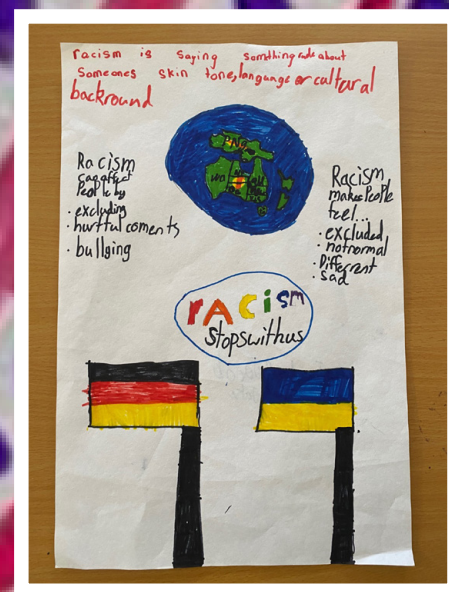 racism is saying something rude about
Someones skin tone, language or cultural
backround
Racism
can affect
People by
· excluding
· hurtful coments
· bullging
Racism
makes People
feel...
· excluded
· not normal
· Different
· sad
PNG
WA
NT
racism
stops with us